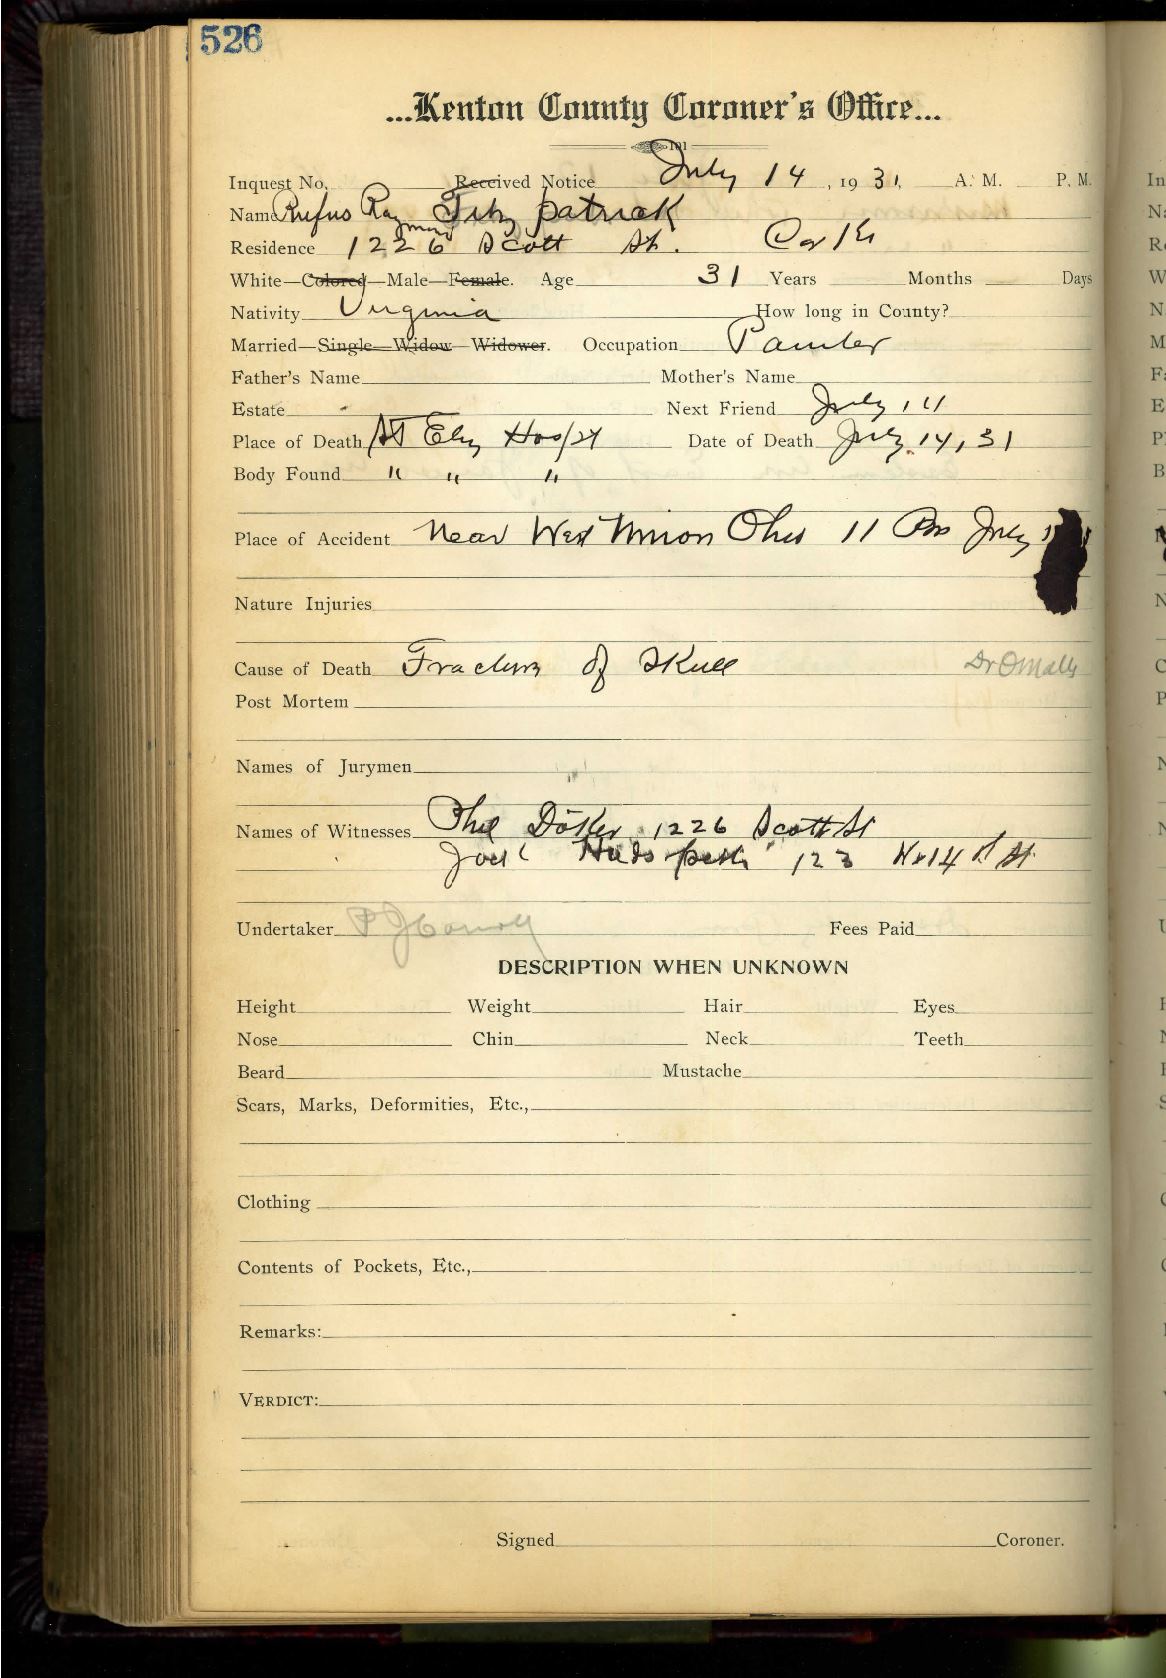 526
...Kenton County Coroner's Office...
101
Inquest No. Received Notice July 14, 1931, A. M. P. M.
Name Rufus Raymond Fitzpatrick
Residence 1226 Scott St. Cov Ky
White—Colored—Male—Female. Age 31 Years Months Days
Nativity Virginia How long in County?
Married—Single—Widow—Widower. Occupation Painter
Father's Name Mother's Name
Estate Next Friend July 11
Place of Death St Eliz Hospt Date of Death July 14, 31
Body Found " " "
Place of Accident Near West Union Ohio 11 Pm July
Nature Injuries
Cause of Death Fracture of Skull Dr OMally
Post Mortem
Names of Jurymen
Names of Witnesses Phil 1226 Scott St
123 14 St
Undertaker P J Fees Paid
DESCRIPTION WHEN UNKNOWN
Height Weight Hair Eyes
Nose Chin Neck Teeth
Beard Mustache
Scars, Marks, Deformities, Etc.,
Clothing
Contents of Pockets, Etc.,
Remarks:
VERDICT:
Signed Coroner.